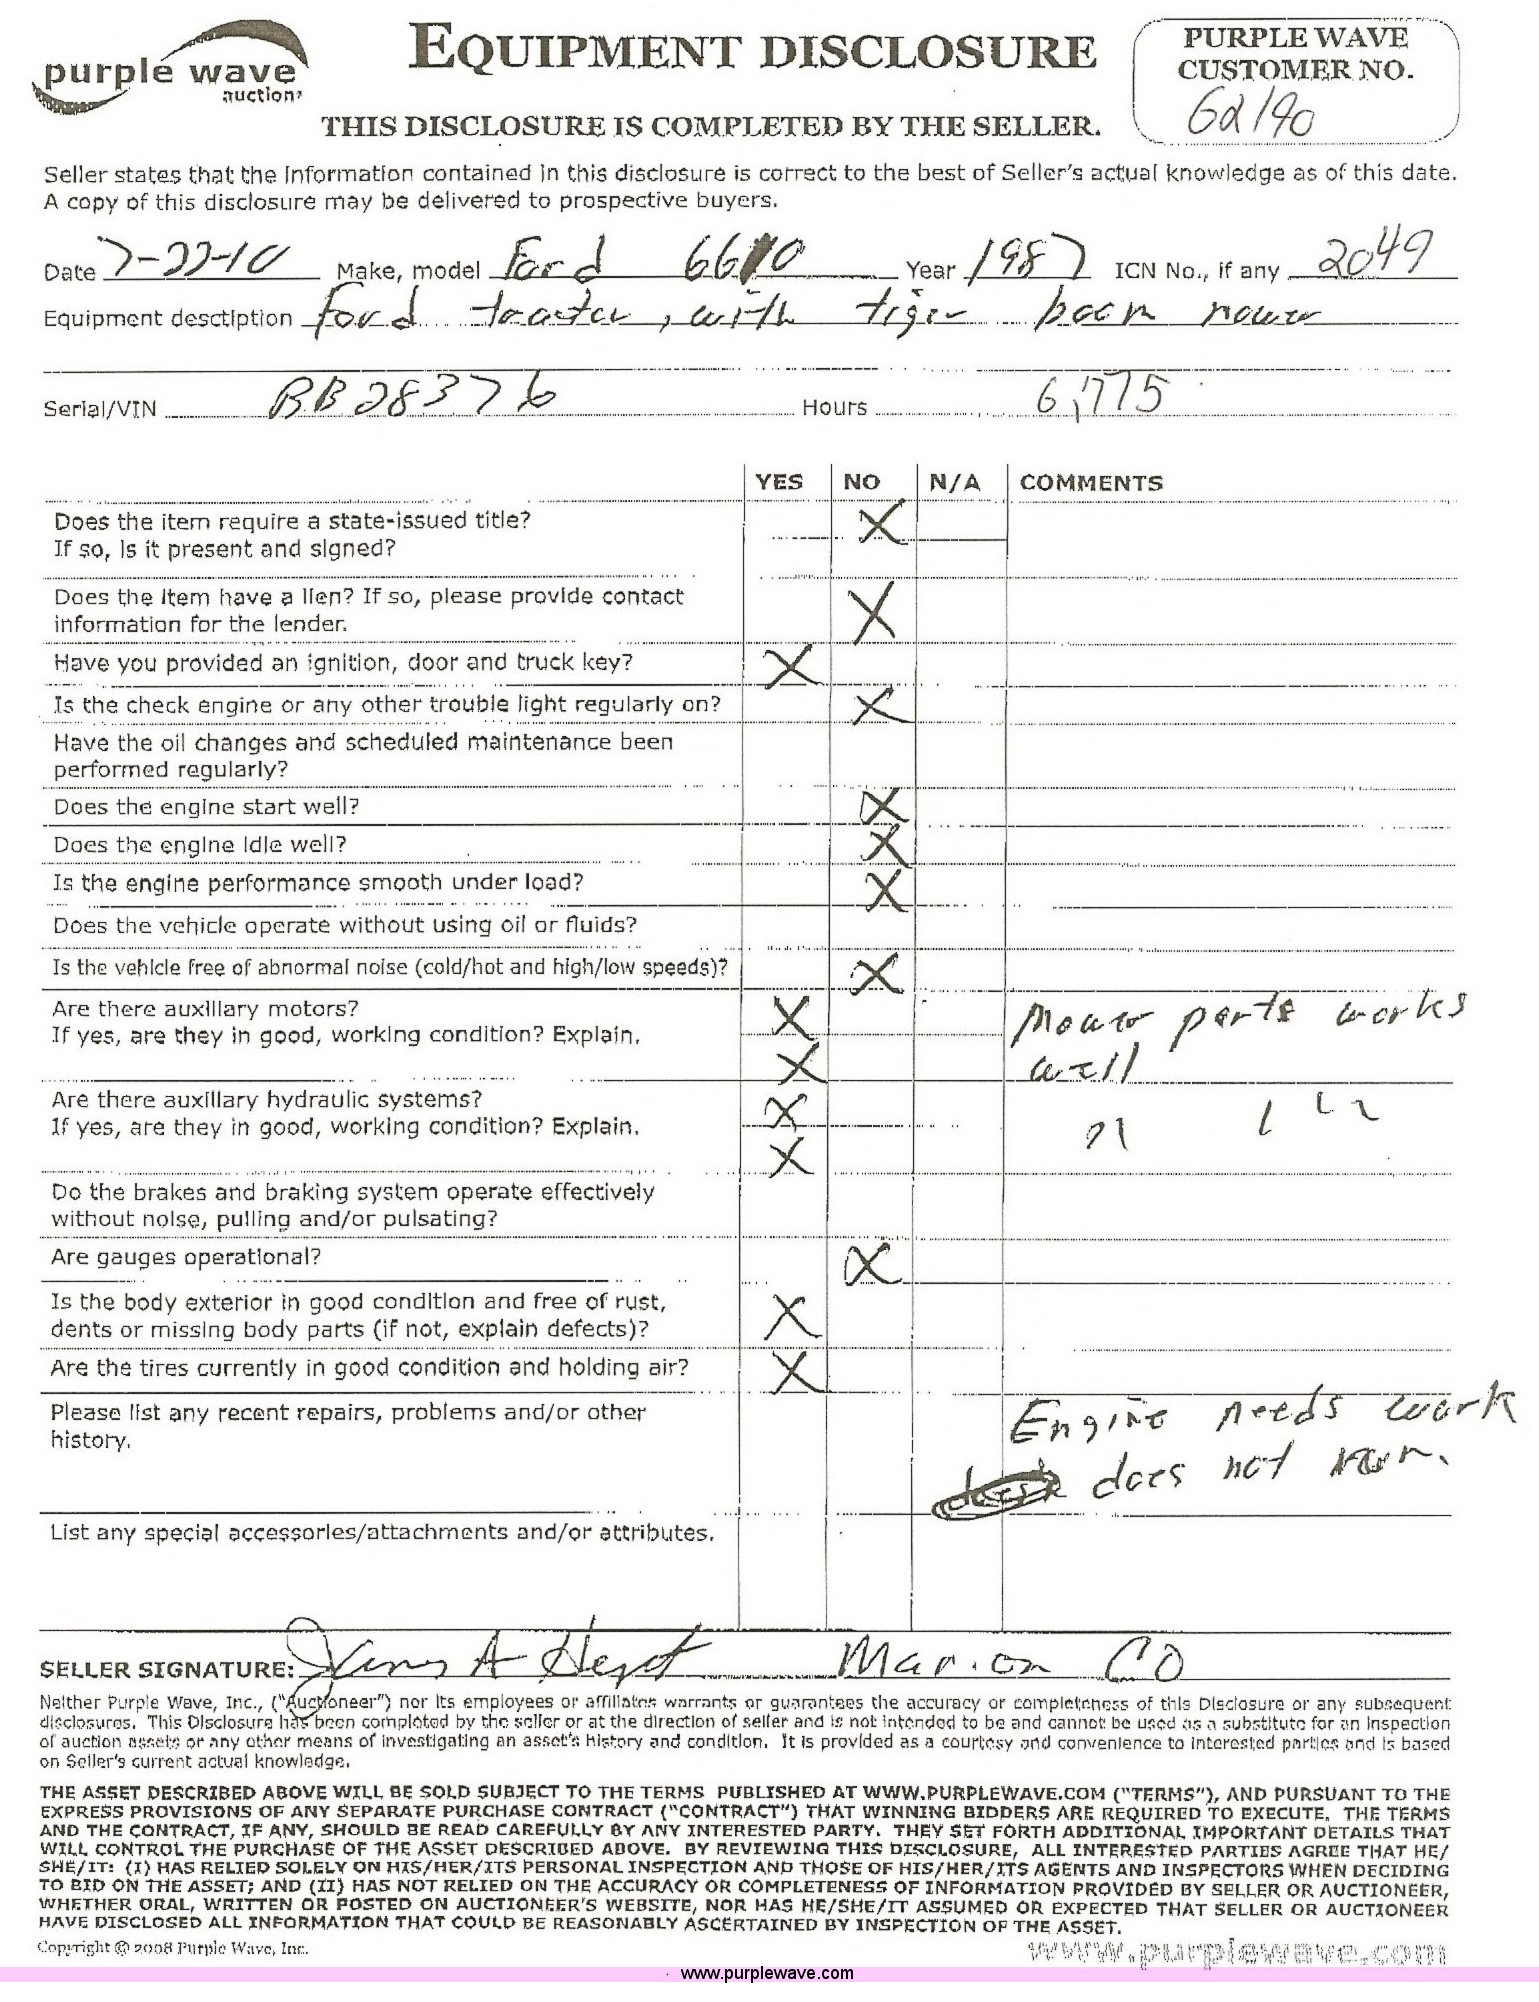 purple wave
auction
EQUIPMENT DISCLOSURE
PURPLE WAVE
CUSTOMER NO.
62190
THIS DISCLOSURE IS COMPLETED BY THE SELLER.
Seller states that the information contained in this disclosure is correct to the best of Seller's actual knowledge as of this date.
A copy of this disclosure may be delivered to prospective buyers.
Date 7-22-10 Make, model Ford 6610 Year 1987 ICN No., if any 2049
Equipment description Ford tractor, with tiger boom mower
Serial/VIN BB28376 Hours 6,775
YES NO N/A COMMENTS
Does the item require a state-issued title? X
If so, is it present and signed?
Does the item have a lien? If so, please provide contact X
information for the lender.
Have you provided an ignition, door and truck key? X
Is the check engine or any other trouble light regularly on? X
Have the oil changes and scheduled maintenance been
performed regularly?
Does the engine start well? X
Does the engine idle well? X
Is the engine performance smooth under load? X
Does the vehicle operate without using oil or fluids?
Is the vehicle free of abnormal noise (cold/hot and high/low speeds)? X
Are there auxiliary motors? X Mower parts works
If yes, are they in good, working condition? Explain. X well
Are there auxiliary hydraulic systems? X
If yes, are they in good, working condition? Explain. X
Do the brakes and braking system operate effectively
without noise, pulling and/or pulsating?
Are gauges operational? X
Is the body exterior in good condition and free of rust, X
dents or missing body parts (if not, explain defects)?
Are the tires currently in good condition and holding air? X
Please list any recent repairs, problems and/or other Engine needs work
history. does not run.
List any special accessories/attachments and/or attributes.
SELLER SIGNATURE: A Marion CO
Neither Purple Wave, Inc., ("Auctioneer") nor its employees or affiliates warrants or guarantees the accuracy or completeness of this Disclosure or any subsequent
disclosures. This Disclosure has been completed by the seller or at the direction of seller and is not intended to be and cannot be used as a substitute for an inspection
of auction assets or any other means of investigating an asset's history and condition. It is provided as a courtesy and convenience to interested parties and is based
on Seller's current actual knowledge.
THE ASSET DESCRIBED ABOVE WILL BE SOLD SUBJECT TO THE TERMS PUBLISHED AT WWW.PURPLEWAVE.COM ("TERMS"), AND PURSUANT TO THE
EXPRESS PROVISIONS OF ANY SEPARATE PURCHASE CONTRACT ("CONTRACT") THAT WINNING BIDDERS ARE REQUIRED TO EXECUTE. THE TERMS
AND THE CONTRACT, IF ANY, SHOULD BE READ CAREFULLY BY ANY INTERESTED PARTY. THEY SET FORTH ADDITIONAL IMPORTANT DETAILS THAT
WILL CONTROL THE PURCHASE OF THE ASSET DESCRIBED ABOVE. BY REVIEWING THIS DISCLOSURE, ALL INTERESTED PARTIES AGREE THAT HE/
SHE/IT: (I) HAS RELIED SOLELY ON HIS/HER/ITS PERSONAL INSPECTION AND THOSE OF HIS/HER/ITS AGENTS AND INSPECTORS WHEN DECIDING
TO BID ON THE ASSET; AND (II) HAS NOT RELIED ON THE ACCURACY OR COMPLETENESS OF INFORMATION PROVIDED BY SELLER OR AUCTIONEER,
WHETHER ORAL, WRITTEN OR POSTED ON AUCTIONEER'S WEBSITE, NOR HAS HE/SHE/IT ASSUMED OR EXPECTED THAT SELLER OR AUCTIONEER
HAVE DISCLOSED ALL INFORMATION THAT COULD BE REASONABLY ASCERTAINED BY INSPECTION OF THE ASSET.
Copyright © 2008 Purple Wave, Inc.
www.purplewave.com
www.purplewave.com